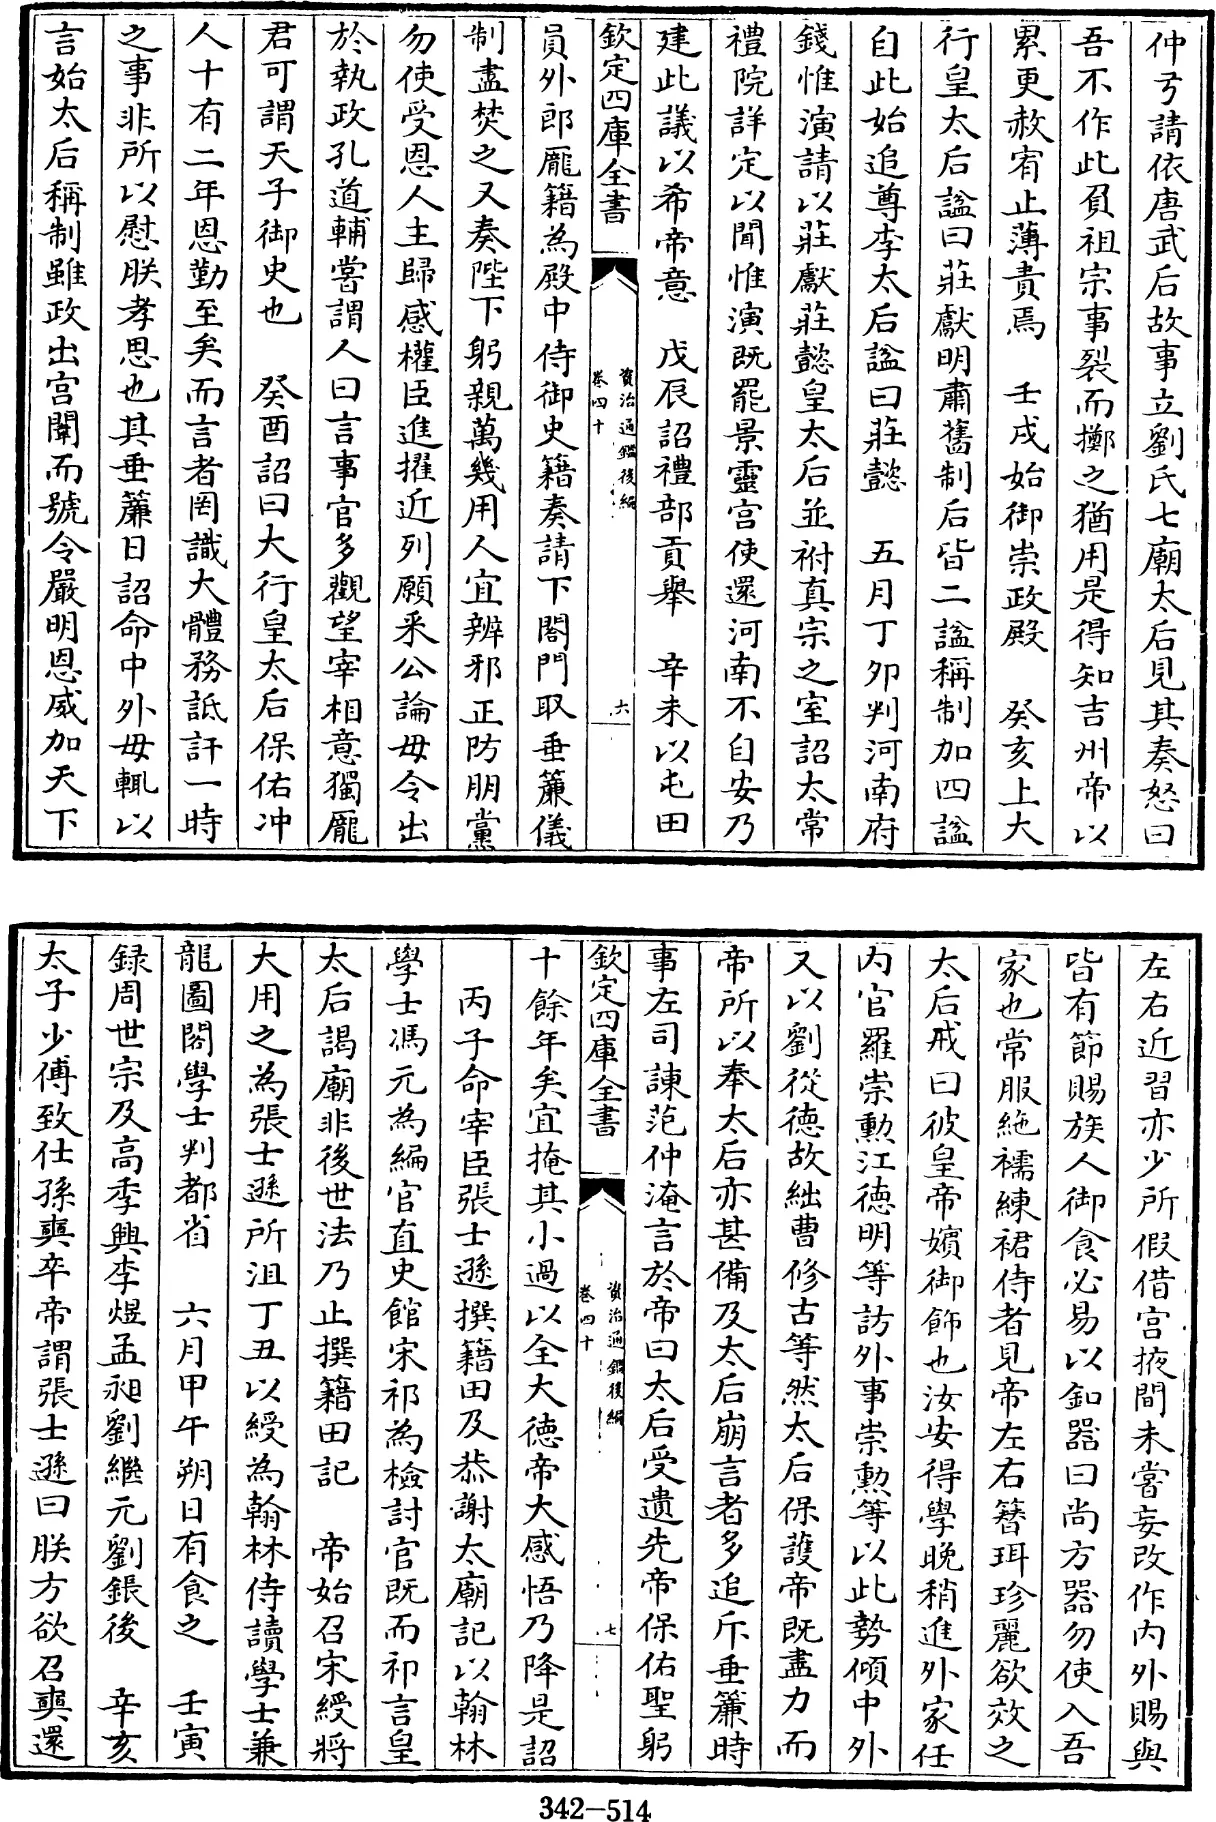 仲弓請依唐武后故事立劉氏七廟太后見其奏怒曰
吾不作此負祖宗事裂而擲之猶用是得知吉州帝以
累更赦宥止薄責焉　壬戌始御崇政殿　癸亥上大
行皇太后謚曰莊獻明肅舊制后皆二謚稱制加四謚
自此始追尊李太后謚曰莊懿　五月丁卯判河南府
錢惟演請以莊獻莊懿皇太后並祔真宗之室詔太常
禮院詳定以聞惟演既罷景靈宫使還河南不自安乃
建此議以希帝意　戊辰詔禮部貢舉　辛未以屯田
欽定四庫全書
資治通鑑後編
卷四十
六
員外郎龎籍為殿中侍御史籍奏請下閤門取垂簾儀
制盡焚之又奏陛下躬親萬幾用人宜辨邪正防朋黨
勿使受恩人主歸感權臣進擢近列願采公論毋令出
於執政孔道輔嘗謂人曰言事官多觀望宰相意獨龎
君可謂天子御史也　癸酉詔曰大行皇太后保佑冲
人十有二年恩勤至矣而言者罔識大體務詆訐一時
之事非所以慰朕孝思也其垂簾日詔命中外毋輒以
言始太后稱制雖政出宫闈而號令嚴明恩威加天下
左右近習亦少所假借宫掖間未嘗妄改作内外賜與
皆有節賜族人御食必易以釦器曰尚方器勿使入吾
家也常服絁襦練裙侍者見帝左右簪珥珍麗欲效之
太后戒曰彼皇帝嬪御飾也汝安得學晚稍進外家任
内官羅崇勲江德明等訪外事崇勲等以此勢傾中外
又以劉從德故絀曹修古等然太后保護帝既盡力而
帝所以奉太后亦甚備及太后崩言者多追斥垂簾時
事左司諫范仲淹言於帝曰太后受遺先帝保佑聖躬
欽定四庫全書
資治通鑑後編
卷四十
七
十餘年矣宜掩其小過以全大德帝大感悟乃降是詔
丙子命宰臣張士遜撰籍田及恭謝太廟記以翰林
學士馮元為編官直史館宋祁為檢討官既而祁言皇
太后謁廟非後世法乃止撰籍田記　帝始召宋綬將
大用之為張士遜所沮丁丑以綬為翰林侍讀學士兼
龍圖閣學士判都省　六月甲午朔日有食之　壬寅
録周世宗及高季興李煜孟昶劉繼元劉鋹後　辛亥
太子少傅致仕孫奭卒帝謂張士遜曰朕方欲召奭還
342-514